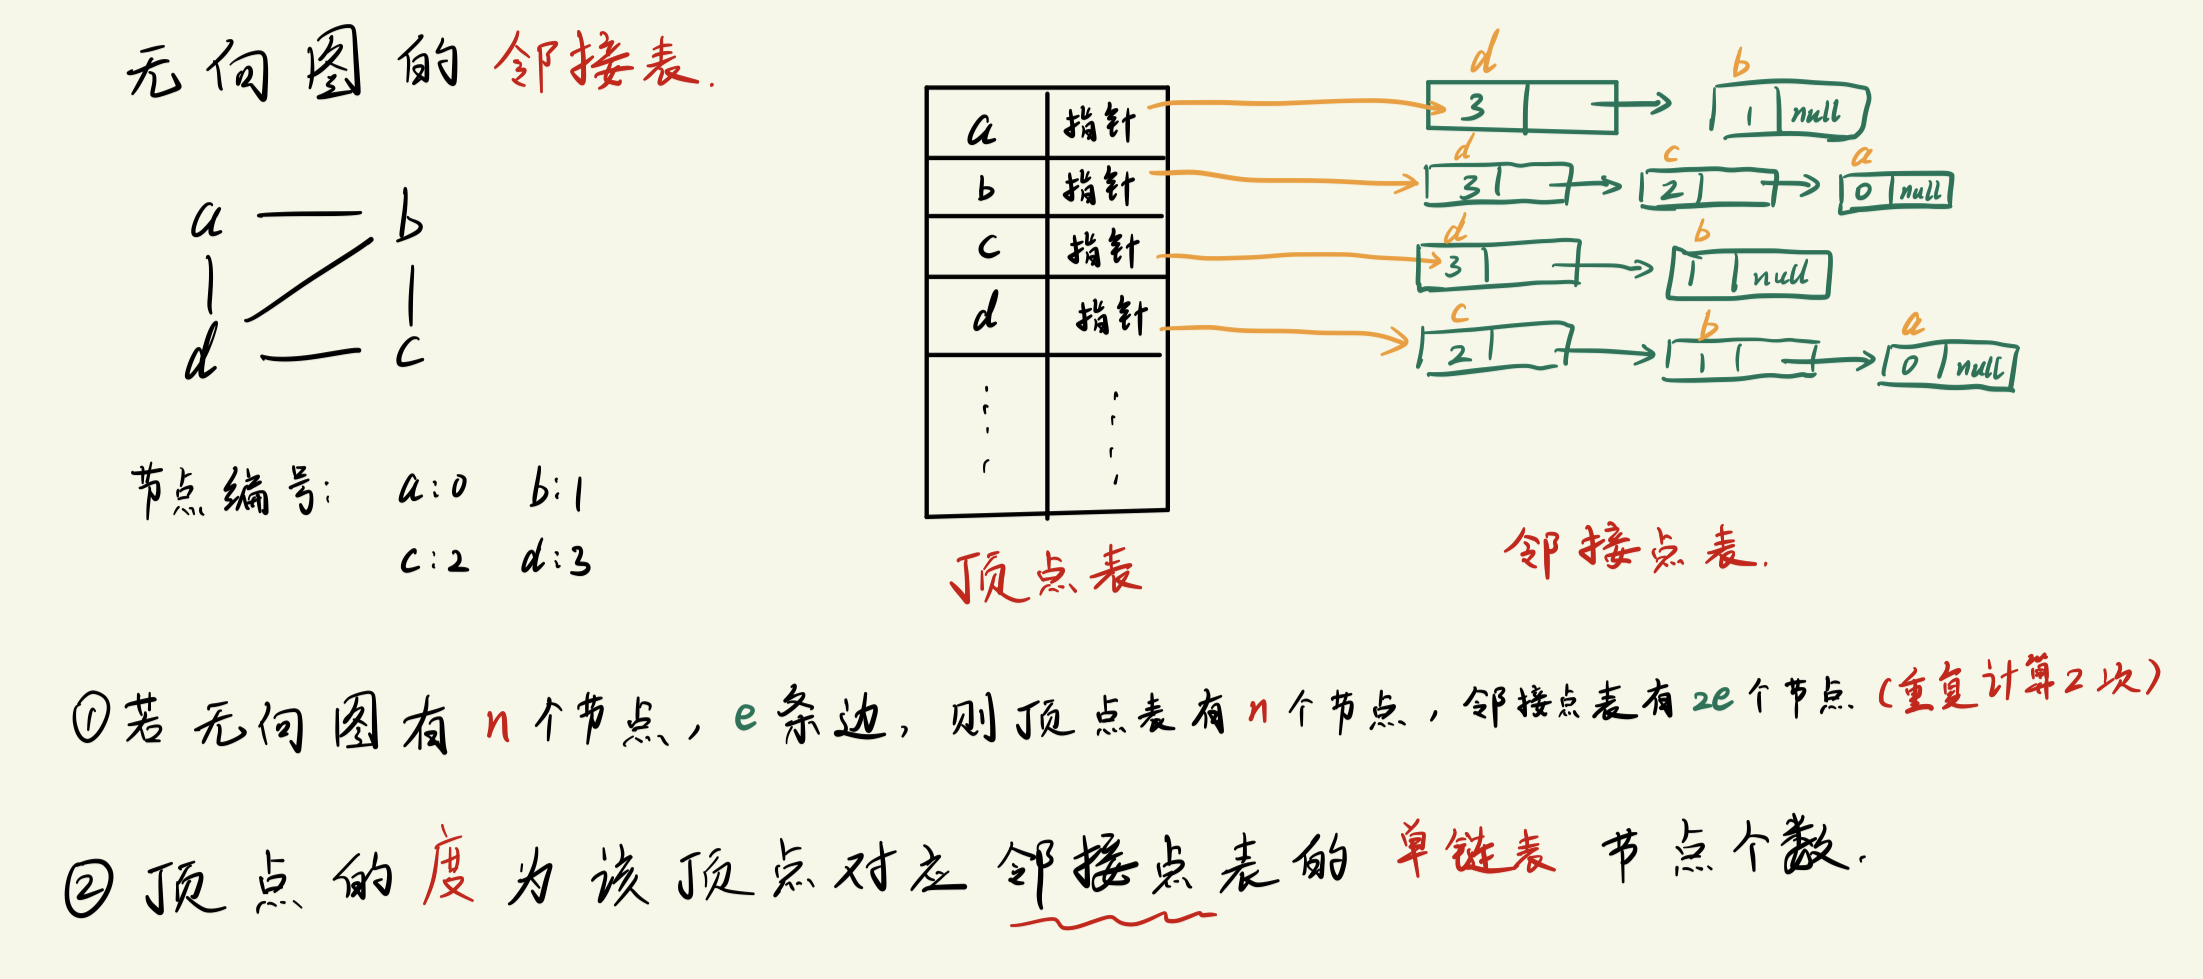 无向图的邻接表.
a b
d c
节点编号: a:0 b:1
c:2 d:3
a 指针 d 3 b 1 null
b 指针 d 3 c 2 a 0 null
c 指针 d 3 b 1 null
d 指针 c 2 b 1 a 0 null
顶点表
邻接点表.
①若无向图有n个节点，e条边，则顶点表有n个节点，邻接点表有2e个节点.(重复计算2次)
②顶点的度为该顶点对应邻接点表的单链表节点个数.